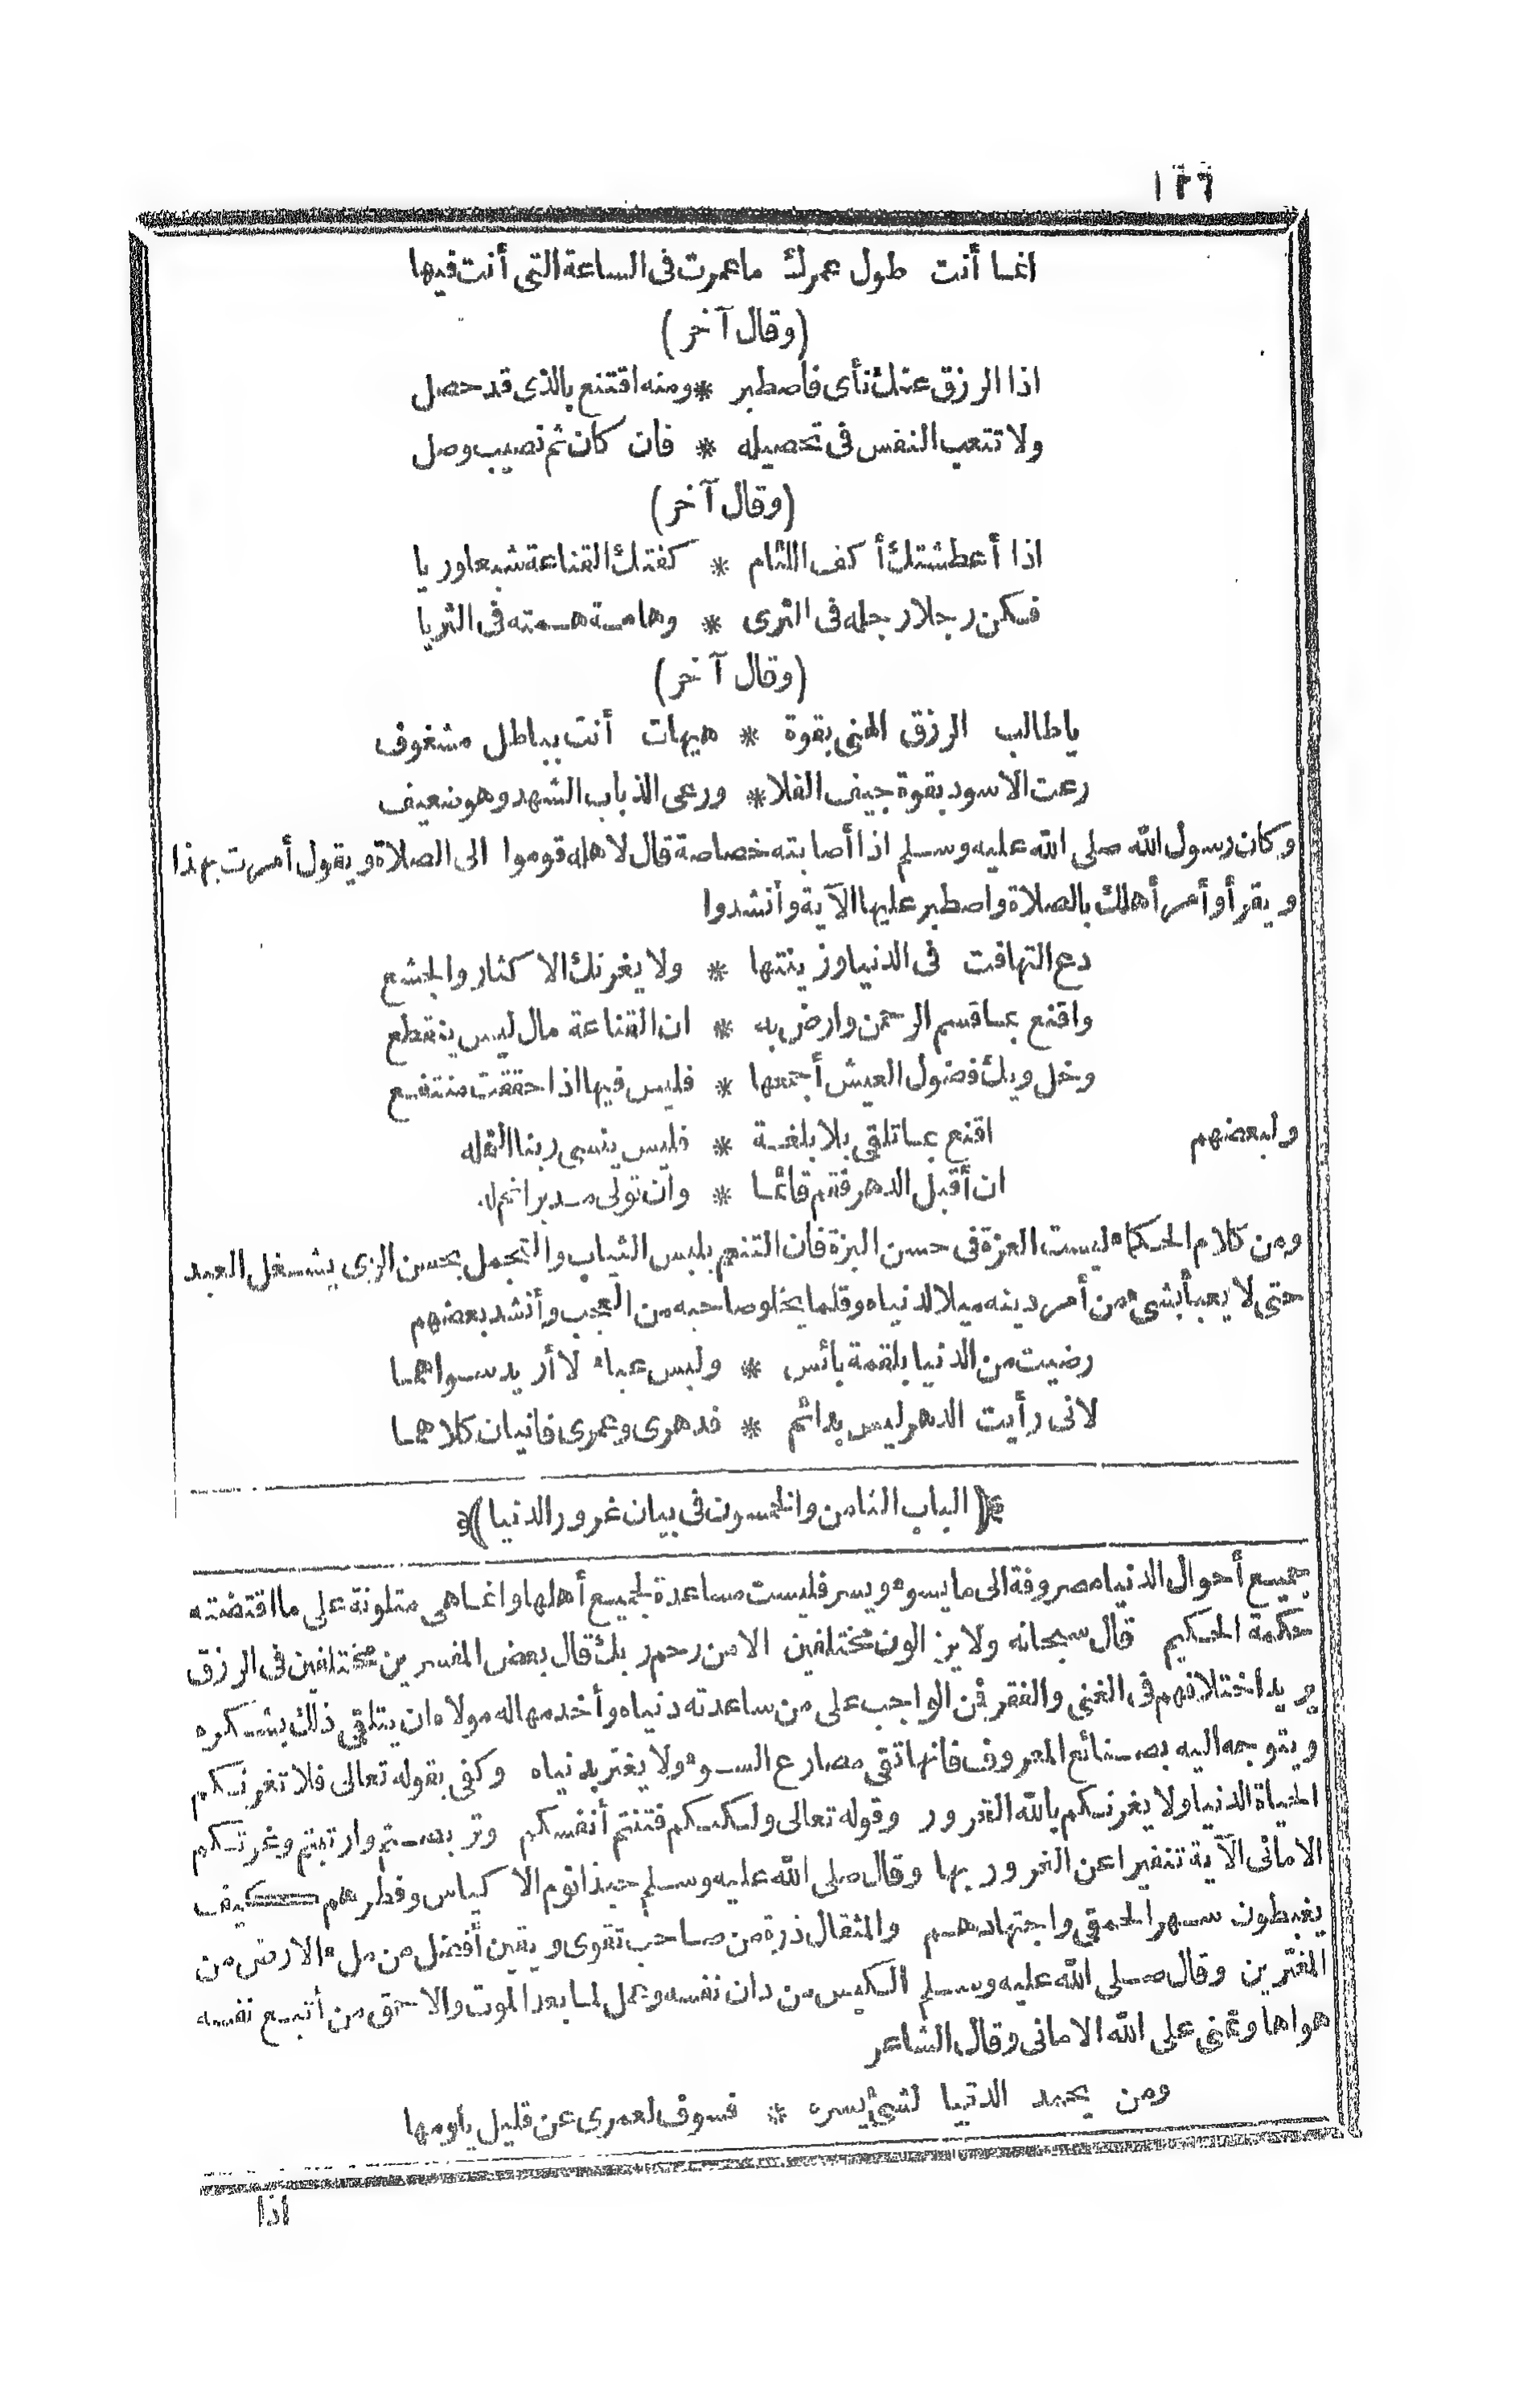 ١٢٦
انما أنت طول عمرك ما عمرت فى الساعة التى أنت فيها
(وقال آخر)
اذا الرزق عنك نأى فاصطبر * ومنه اقتنع بالذى قد حصل
ولا تتعب النفس فى تحصيله * فان كان ثم نصيب وصل
(وقال آخر)
اذا أعطشتك أكف اللئام * كفتك القناعة شبعا وريا
فكن رجلا رجله فى الثرى * وهامة همته فى الثريا
(وقال آخر)
يا طالب الرزق الهنى بقوة * هيهات أنت بباطل مشغوف
رعت الاسود بقوة جيف الفلا * ورعى الذباب الشهد وهو ضعيف
وكان رسول الله صلى الله عليه وسلم اذا أصابته خصاصة قال لاهله قوموا الى الصلاة ويقول أمرت بهذا
ويقرأ وأمر أهلك بالصلاة واصطبر عليها الآية وأنشدوا
دع التهافت فى الدنيا وزينتها * ولا يغرنك الاكثار والجشع
واقنع بما قسم الرحمن وارض به * ان القناعة مال ليس ينقطع
وخل ويك فضول العيش أجمعها * فليس فيها اذا حققت منتفع
ولبعضهم اقنع بما تلقى بلا بلغة * فليس ينسى ربنا النمله
ان أقبل الدهر فقم قائما * وان تولى مدبرا نم له
ومن كلام الحكماء ليست العزة فى حسن البزة فان التنعم بلبس الثياب والتجمل بحسن الزى يشغل العبد
حتى لا يعبأ بشئ من أمر دينه ميلا لدنياه وقلما يخلو صاحبه من العجب وأنشد بعضهم
رضيت من الدنيا بلقمة بائس * ولبس عباء لا أريد سواهما
لانى رأيت الدهر ليس بدائم * فدهرى وعمرى فانيان كلاهما
﴿الباب الثامن والخمسون فى بيان غرور الدنيا﴾
جميع أحوال الدنيا مصروفة الى ما يسوء ويسر فليست مساعدة لجميع أهلها وانما هى متلونة على ما اقتضته
حكمة الحكيم قال سبحانه ولا يزالون مختلفين الا من رحم ربك قال بعض المفسرين مختلفين فى الرزق
يريد اختلافهم فى الغنى والفقر فمن الواجب على من ساعدته دنياه وأخدمها له مولاه ان يتلقى ذلك بشكره
ويتوجه اليه بصنائع المعروف فانها تقى مصارع السوء ولا يغتر بدنياه وكفى بقوله تعالى فلا تغرنكم
الحياة الدنيا ولا يغرنكم بالله الغرور وقوله تعالى ولكنكم فتنتم أنفسكم وتربصتم وارتبتم وغرتكم
الامانى الآية تنفيرا عن الغرور بها وقال صلى الله عليه وسلم حبذا نوم الاكياس وفطرهم كيف
يغبطون سهر الحمقى واجتهادهم والمثقال ذرة من صاحب تقوى ويقين أفضل من ملء الارض من
المغترين وقال صلى الله عليه وسلم الكيس من دان نفسه وعمل لما بعد الموت والاحمق من أتبع نفسه
هواها وتمنى على الله الامانى وقال الشاعر
ومن يحمد الدنيا لشئ يسره * فسوف لعمرى عن قليل يلومها
اذا